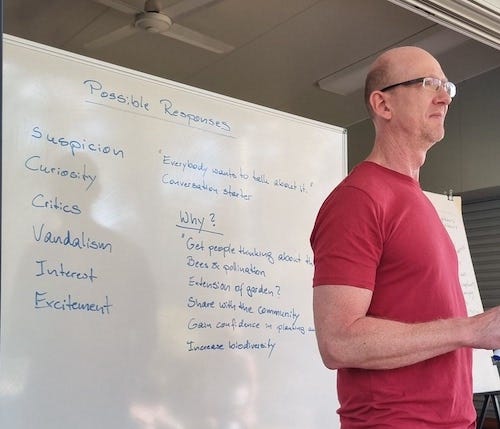 Possible Responses
Suspicion
Curiosity
Critics
Vandalism
Interest
Excitement
"Everybody wants to talk about it."
Conversation starter
Why?
"Get people thinking about
Bees & pollination
Extension of garden?
Share with the community
Gain confidence in planting
Increase biodiversity